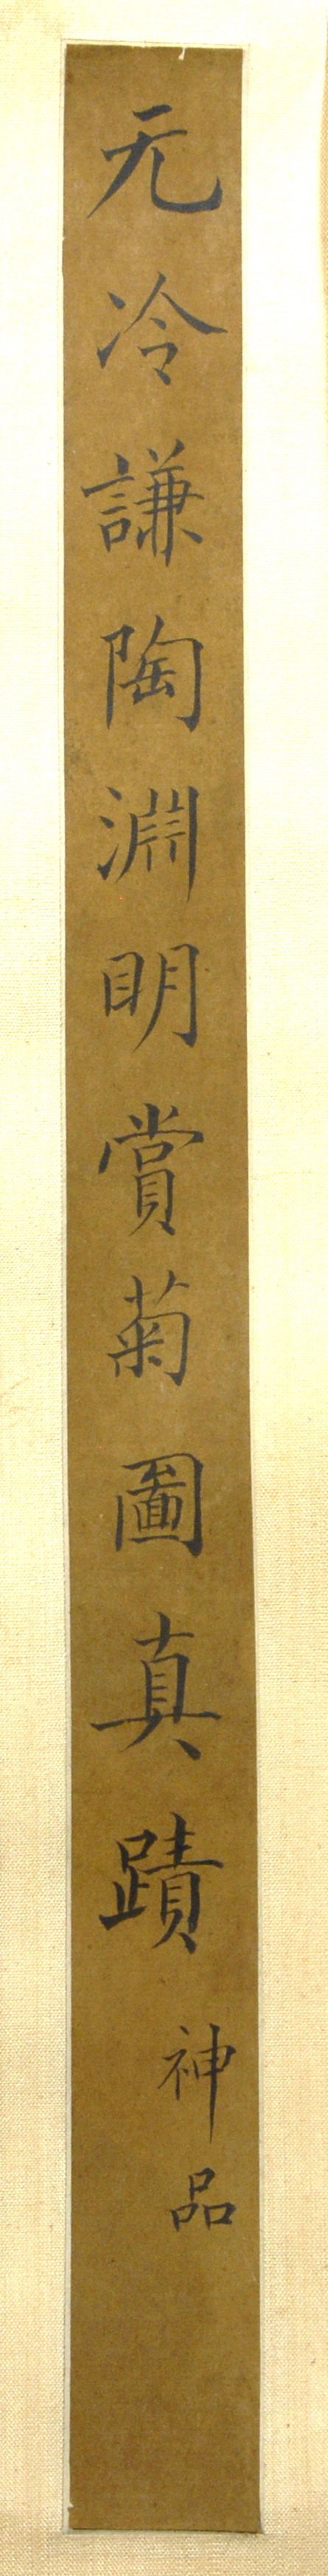 元冷謙陶淵明賞菊圖真蹟
神品